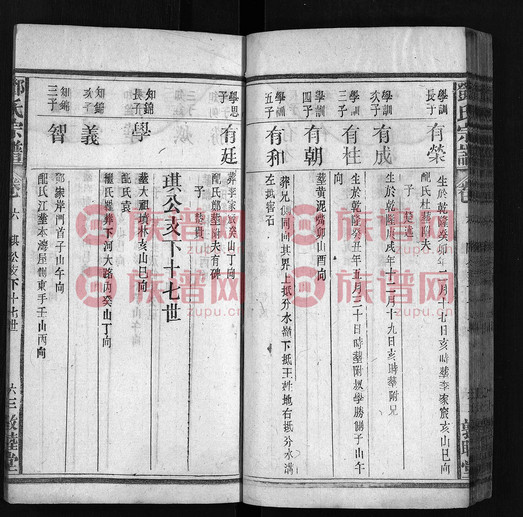 鄧氏宗譜
卷六
學訓長子
有榮
生於乾隆癸卯年二月十七日亥時葬李家嶺亥山巳向
配氏杜葬附夫
子
學訓次子
有成
生於乾隆庚戌年十二月十九日亥時葬附兄
學訓三子
有柱
生於乾隆癸丑年五月三十日時葬附叔學勝側子山午向
學訓四子
有朝
葬黃泥
卯山酉向
學訓五子
有和
葬兄側同向其界上抵分水嶺下抵王姓地右抵分水溝
左抵窖石
學思子
有廷
葬李家嶺癸山丁向
配氏鄧葬附夫有碑
子
琪公支下十七世
知錦長子
學
葬大祖墳林亥山巳向
配氏袁
知錦次子
義
配氏
葬下河大路內癸山丁向
知錦三子
智
葬
門首子山午向
配氏江葬本灣屋側東手壬山丙向
鄧氏宗譜
卷六
琪公支下十七世
六三
敦睦堂
族谱网
zupu.cn